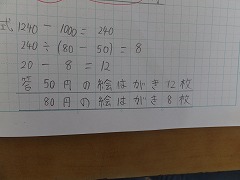 式 1240 - 1000 = 240
240 ÷ (80 - 50) = 8
20 - 8 = 12
答 50円の絵はがき12枚
80円の絵はがき8枚